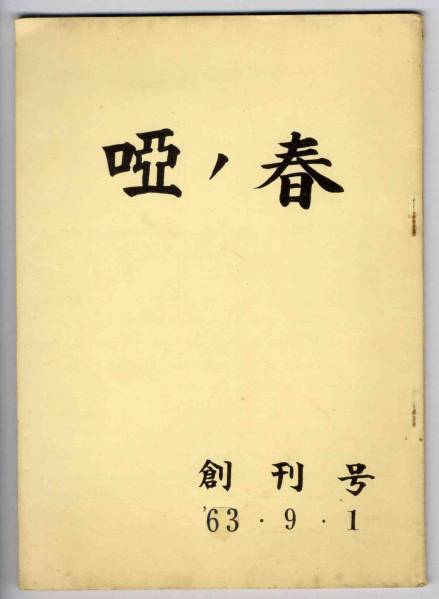 啞ノ春
創刊号
'63・9・1